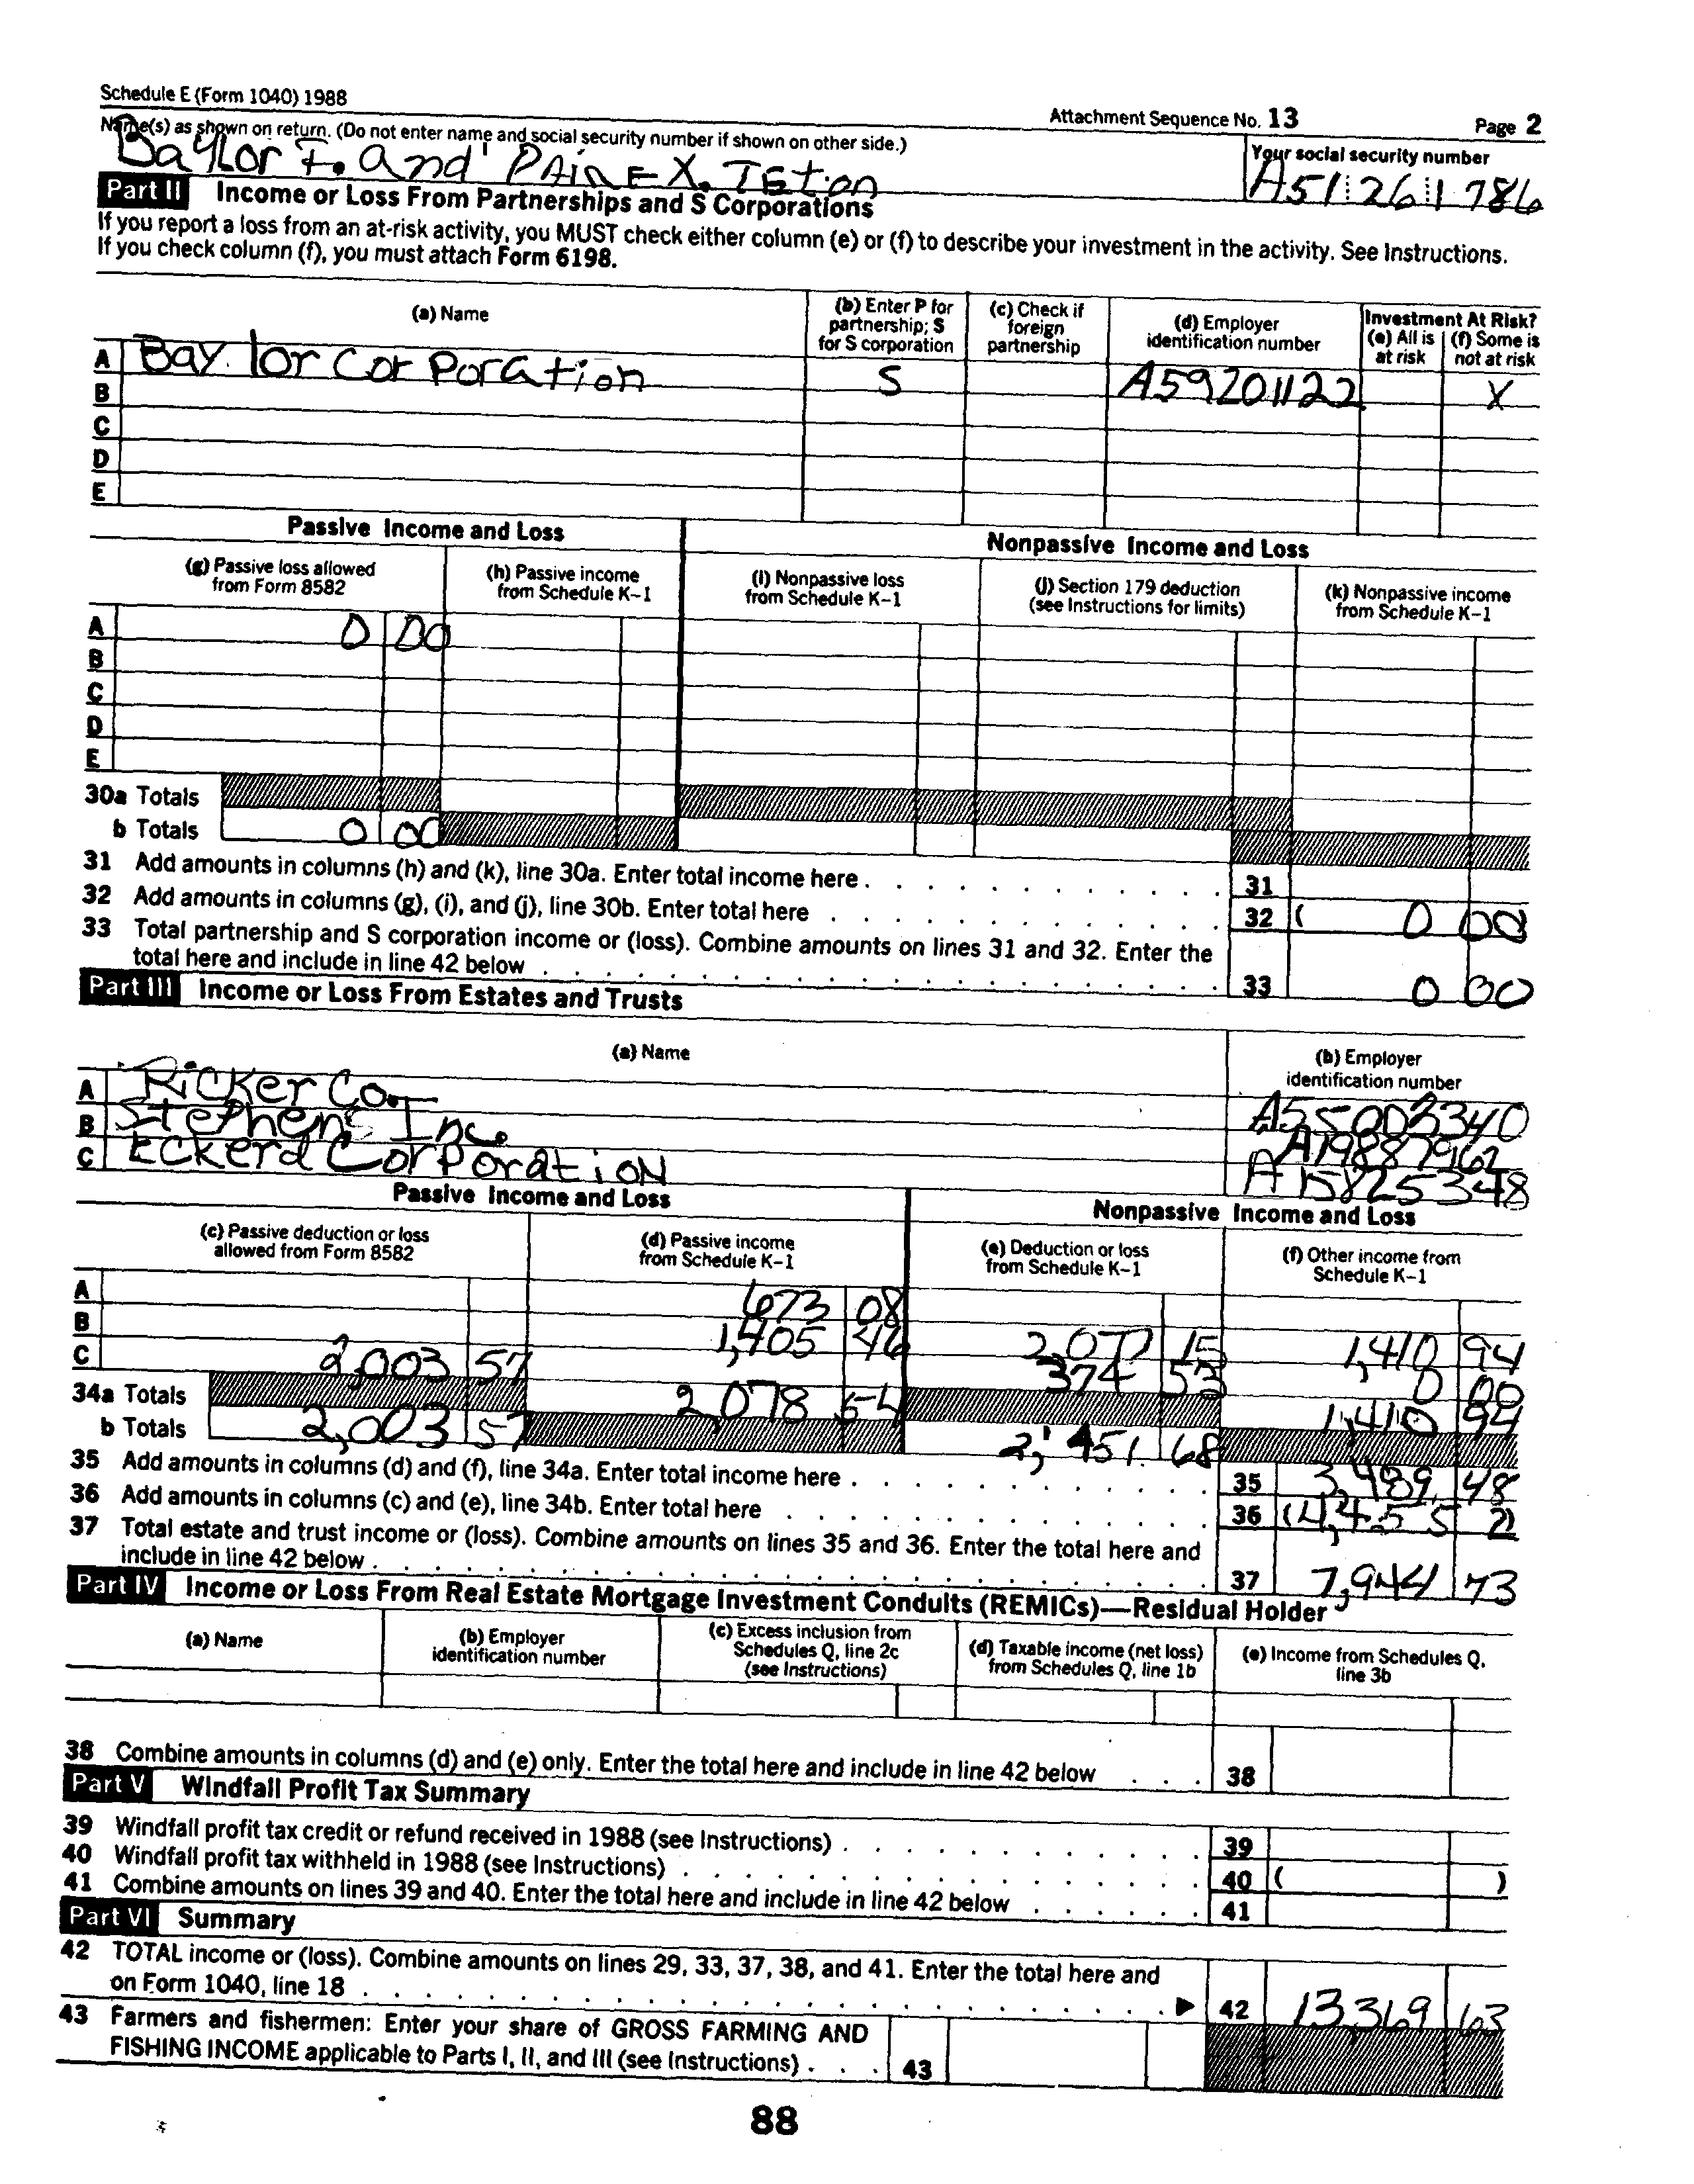 Schedule E (Form 1040) 1988
Attachment Sequence No. 13 Page 2
Name(s) as shown on return. (Do not enter name and social security number if shown on other side.)
Your social security number
Baylor F. and PAinE X. TEton
A51 26 1786
Part II Income or Loss From Partnerships and S Corporations
If you report a loss from an at-risk activity, you MUST check either column (e) or (f) to describe your investment in the activity. See Instructions.
If you check column (f), you must attach Form 6198.
(a) Name
(b) Enter P for partnership; S for S corporation
(c) Check if foreign partnership
(d) Employer identification number
Investment At Risk?
(e) All is at risk
(f) Some is not at risk
A Baylor CorPoration S A59201122 X
B
C
D
E
Passive Income and Loss
Nonpassive Income and Loss
(g) Passive loss allowed from Form 8582
(h) Passive income from Schedule K–1
(i) Nonpassive loss from Schedule K–1
(j) Section 179 deduction (see Instructions for limits)
(k) Nonpassive income from Schedule K–1
A 0 00
B
C
D
E
30a Totals
b Totals 0 00
31 Add amounts in columns (h) and (k), line 30a. Enter total income here 31
32 Add amounts in columns (g), (i), and (j), line 30b. Enter total here 32 ( 0 00
33 Total partnership and S corporation income or (loss). Combine amounts on lines 31 and 32. Enter the
total here and include in line 42 below 33 0 00
Part III Income or Loss From Estates and Trusts
(a) Name
(b) Employer identification number
A Ricker Co. A55003340
B Stephens Inc. A19887962
C Eckerd CorPoratioN A15825348
Passive Income and Loss
Nonpassive Income and Loss
(c) Passive deduction or loss allowed from Form 8582
(d) Passive income from Schedule K–1
(e) Deduction or loss from Schedule K–1
(f) Other income from Schedule K–1
A 673 08
B 1,405 46 2,077 15 1,410 94
C 2,003 57 374 53 0 00
34a Totals 2,078 54 1,410 94
b Totals 2,003 57 2,451 68
35 Add amounts in columns (d) and (f), line 34a. Enter total income here 35 3,489 48
36 Add amounts in columns (c) and (e), line 34b. Enter total here 36 (4,455 2)
37 Total estate and trust income or (loss). Combine amounts on lines 35 and 36. Enter the total here and
include in line 42 below 37 7,944 73
Part IV Income or Loss From Real Estate Mortgage Investment Conduits (REMICs)—Residual Holder
(a) Name
(b) Employer identification number
(c) Excess inclusion from Schedules Q, line 2c (see Instructions)
(d) Taxable income (net loss) from Schedules Q, line 1b
(e) Income from Schedules Q, line 3b
38 Combine amounts in columns (d) and (e) only. Enter the total here and include in line 42 below 38
Part V Windfall Profit Tax Summary
39 Windfall profit tax credit or refund received in 1988 (see Instructions) 39
40 Windfall profit tax withheld in 1988 (see Instructions) 40 ( )
41 Combine amounts on lines 39 and 40. Enter the total here and include in line 42 below 41
Part VI Summary
42 TOTAL income or (loss). Combine amounts on lines 29, 33, 37, 38, and 41. Enter the total here and
on Form 1040, line 18 ▶ 42 13,369 63
43 Farmers and fishermen: Enter your share of GROSS FARMING AND
FISHING INCOME applicable to Parts I, II, and III (see Instructions) 43
88